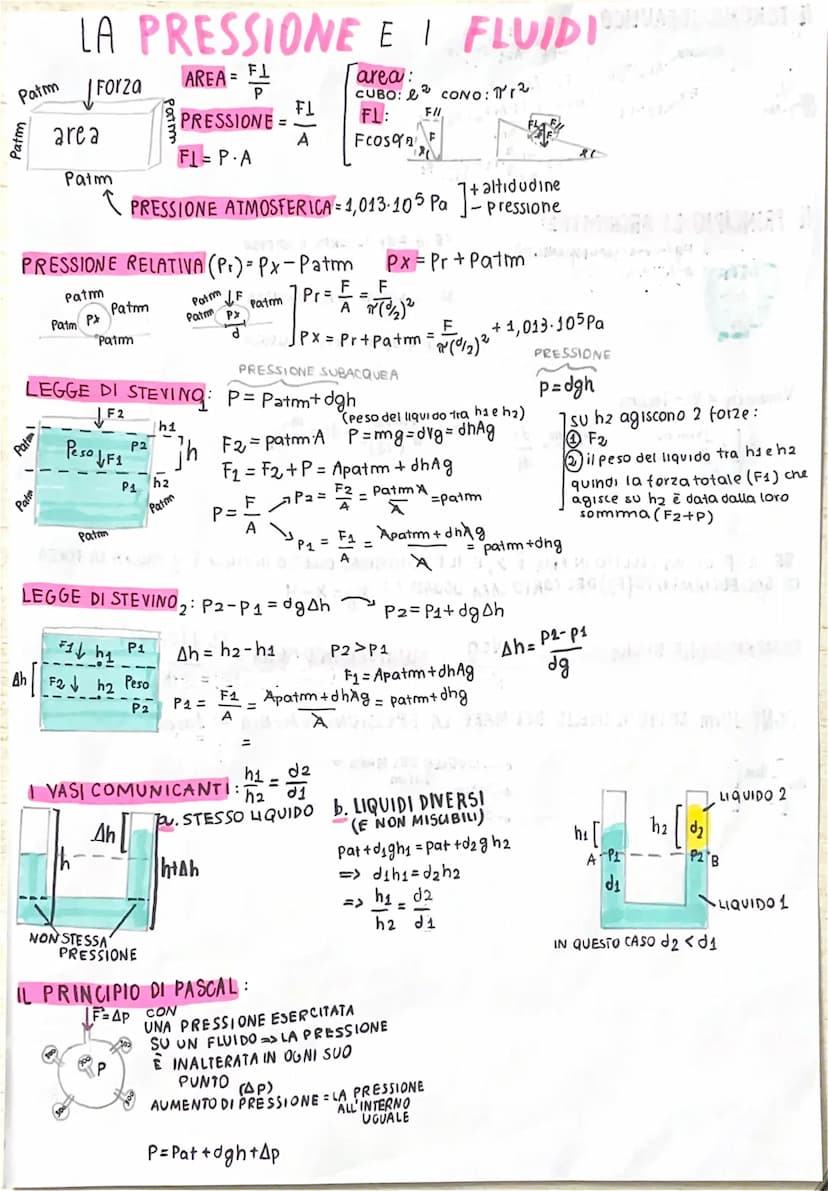 LA PRESSIONE E I FLUIDI
Patm ↓FORZA
Patm area Patm
Patm
AREA = F⊥/P
PRESSIONE = F⊥/A
F⊥ = P·A
area:
CUBO: ℓ² CONO: πr²
F⊥:
Fcosα
F//
F
α
F⊥ F//
F
α
PRESSIONE ATMOSFERICA = 1,013·10⁵ Pa
+ altidudine
- pressione
PRESSIONE RELATIVA (Pr) = Px - Patm Px = Pr + Patm
Patm
Patm Px Patm
Patm
Patm ↓F Patm
Patm Px
d
Pr = F/A = F/π(d/2)²
Px = Pr + Patm = F/π(d/2)² + 1,013·10⁵Pa
PRESSIONE SUBACQUEA
PRESSIONE
LEGGE DI STEVINO1: P = Patm + dgh
p=dgh
↓F2
Patm Peso ↓F1 P2 h1
h
P1 h2
Patm Patm
Patm
(peso del liquido tra h1 e h2)
F2 = patm·A P=mg=dVg=dhAg
F1 = F2 + P = Apatm + dhAg
P = F/A → P2 = F2/A = PatmA/A = patm
→ P1 = F1/A = Apatm + dhAg/A = patm+dhg
su h2 agiscono 2 forze:
① F2
② il peso del liquido tra h1 e h2
quindi la forza totale (F1) che
agisce su h2 è data dalla loro
somma (F2+P)
LEGGE DI STEVINO2: P2-P1 = dgΔh → P2=P1+dgΔh
F1↓ h1 P1
Δh F2↓ h2 Peso
P2
Δh = h2-h1 P2>P1
F1=Apatm+dhAg
P1 = F1/A = Apatm+dhAg/A = patm+dhg
=
·Δh = P2-P1/dg
I VASI COMUNICANTI: h1/h2 = d2/d1
a. STESSO LIQUIDO
Δh
h
h+Δh
NON STESSA
PRESSIONE
b. LIQUIDI DIVERSI
(E NON MISCIBILI)
Pat+d1gh1 = pat+d2gh2
=> d1h1=d2h2
=> h1/h2 = d2/d1
LIQUIDO 2
h1 h2 d2
A P1 P2 B
d1
LIQUIDO 1
IN QUESTO CASO d2 < d1
IL PRINCIPIO DI PASCAL:
↓F=Δp
P
CON
UNA PRESSIONE ESERCITATA
SU UN FLUIDO => LA PRESSIONE
È INALTERATA IN OGNI SUO
PUNTO (Δp)
AUMENTO DI PRESSIONE = LA PRESSIONE
ALL'INTERNO
UGUALE
P=Pat+dgh+Δp